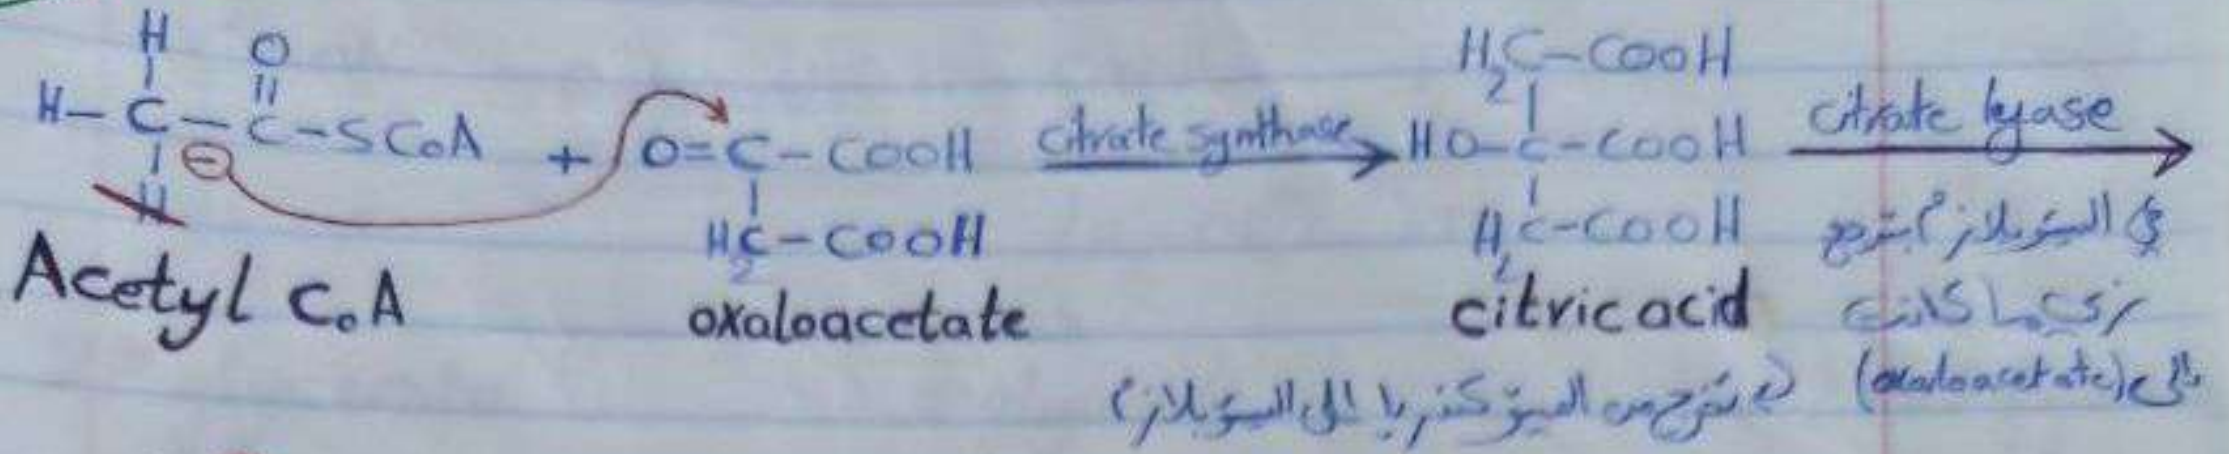 H O
H-C-C-SCoA + O=C-COOH citrate synthase HO-C-COOH citrate lyase
H ⊖
H₂C-COOH
H₂C-COOH
H₂C-COOH
Acetyl CoA
oxaloacetate
citric acid
في السيتوبلازم بترجع
زي ما كانت
(oxaloacetate)
من الميتوكندريا إلى السيتوبلازم)